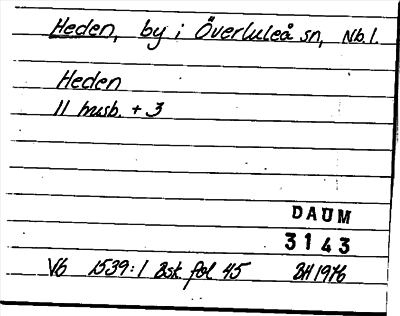 Heden, by i Överluleå sn, Nb.l.
Heden
11 husb. + 3
DAUM
3143
Vb 1539:1 Bsk fol 45 BH 1976